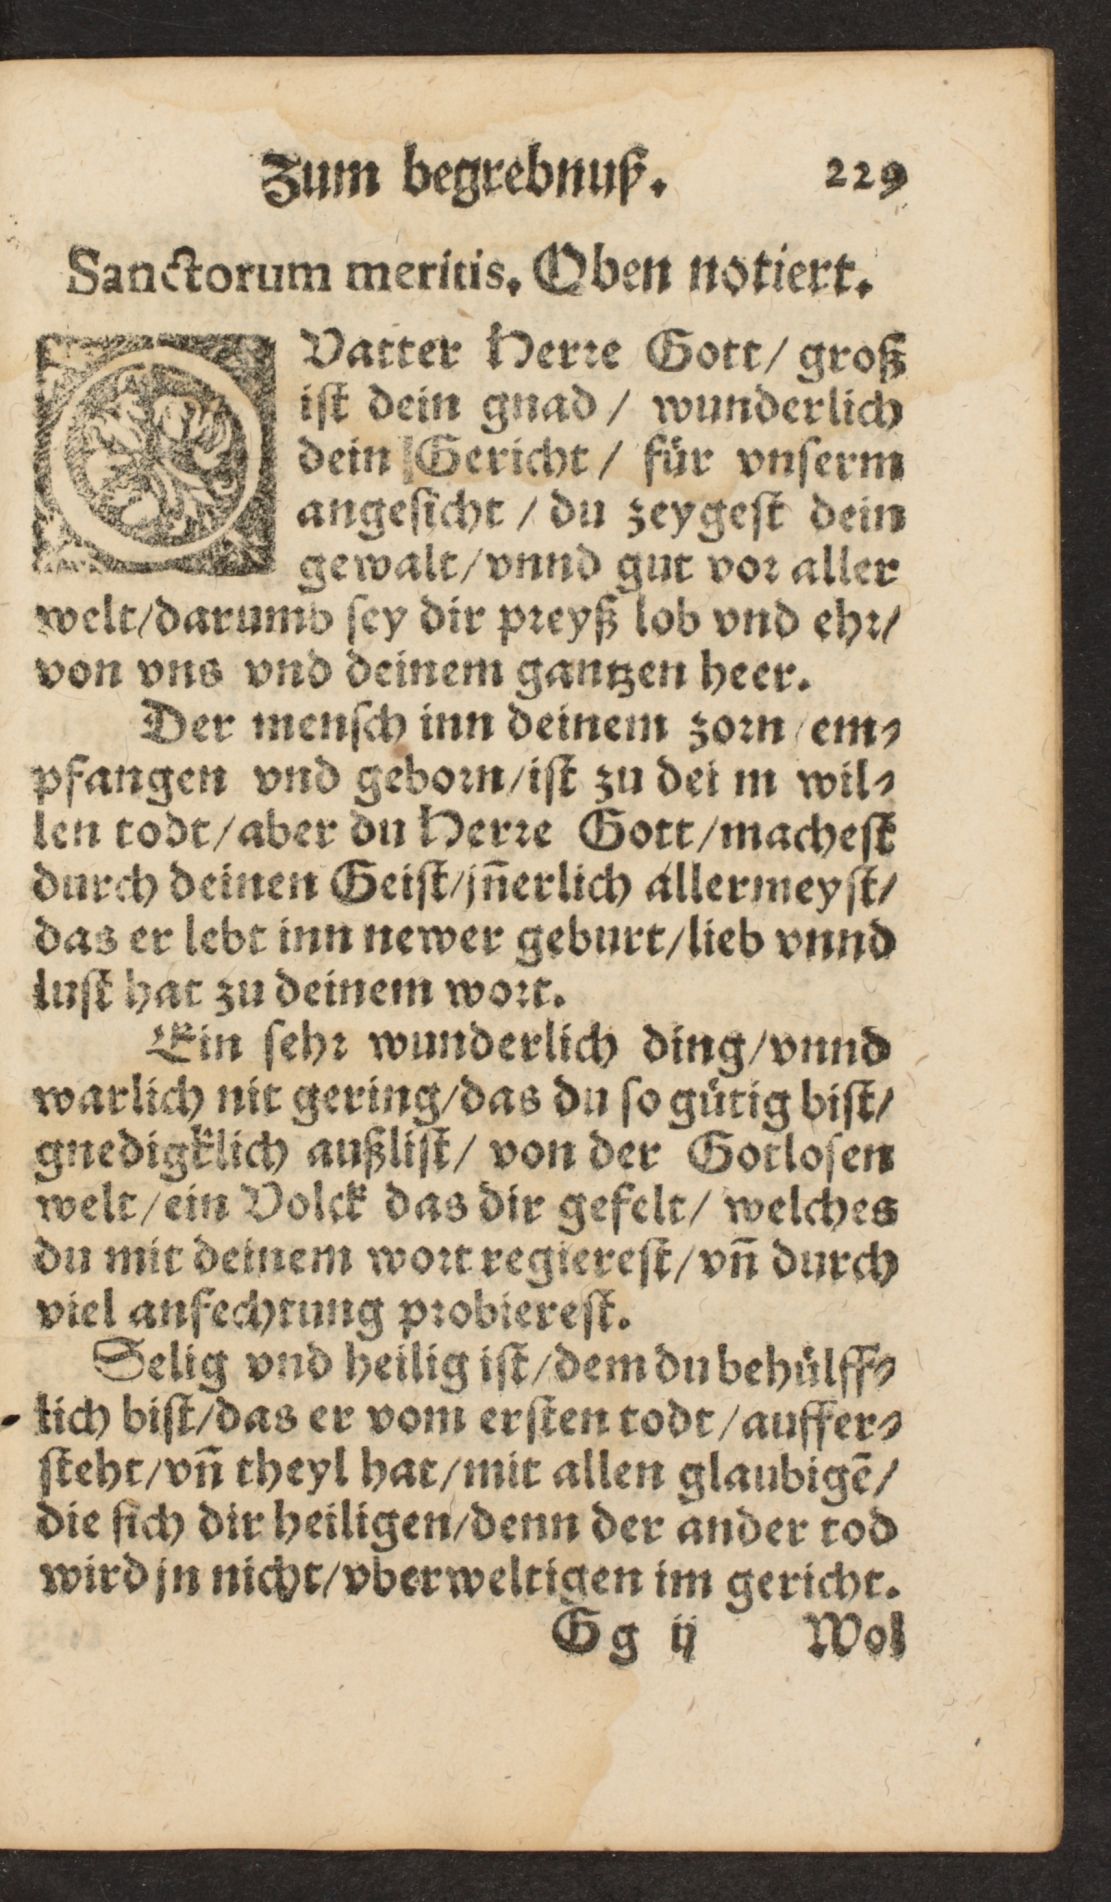 Zum begrebnuß. 229
Sanctorum meritis. Oben notiert.
O Vatter Herre Gott/ groß
ist dein gnad/ wunderlich
dein Gericht/ für vnserm
angesicht/ du zeygest dein
gewalt/vnnd gut vor aller
welt/darumb sey dir preyß lob vnd ehr/
von vns vnd deinem gantzen heer.
Der mensch inn deinem zorn/em⸗
pfangen vnd geborn/ist zu dei m wil⸗
len todt/aber du Herre Gott/machest
durch deinen Geist/jñerlich allermeyst/
das er lebt inn newer geburt/lieb vnnd
lust hat zu deinem wort.
Ein sehr wunderlich ding/vnnd
warlich nit gering/das du so gütig bist/
gnedigklich außlist/ von der Gotlosen
welt/ein Volck das dir gefelt/ welches
du mit deinem wort regierest/vñ durch
viel anfechtung probierest.
Selig vnd heilig ist/dem du behülff⸗
lich bist/das er vom ersten todt/auffer⸗
steht/vñ theyl hat/mit allen glaubigẽ/
die sich dir heiligen/denn der ander tod
wird jn nicht/vberweltigen im gericht.
Gg ij Wol